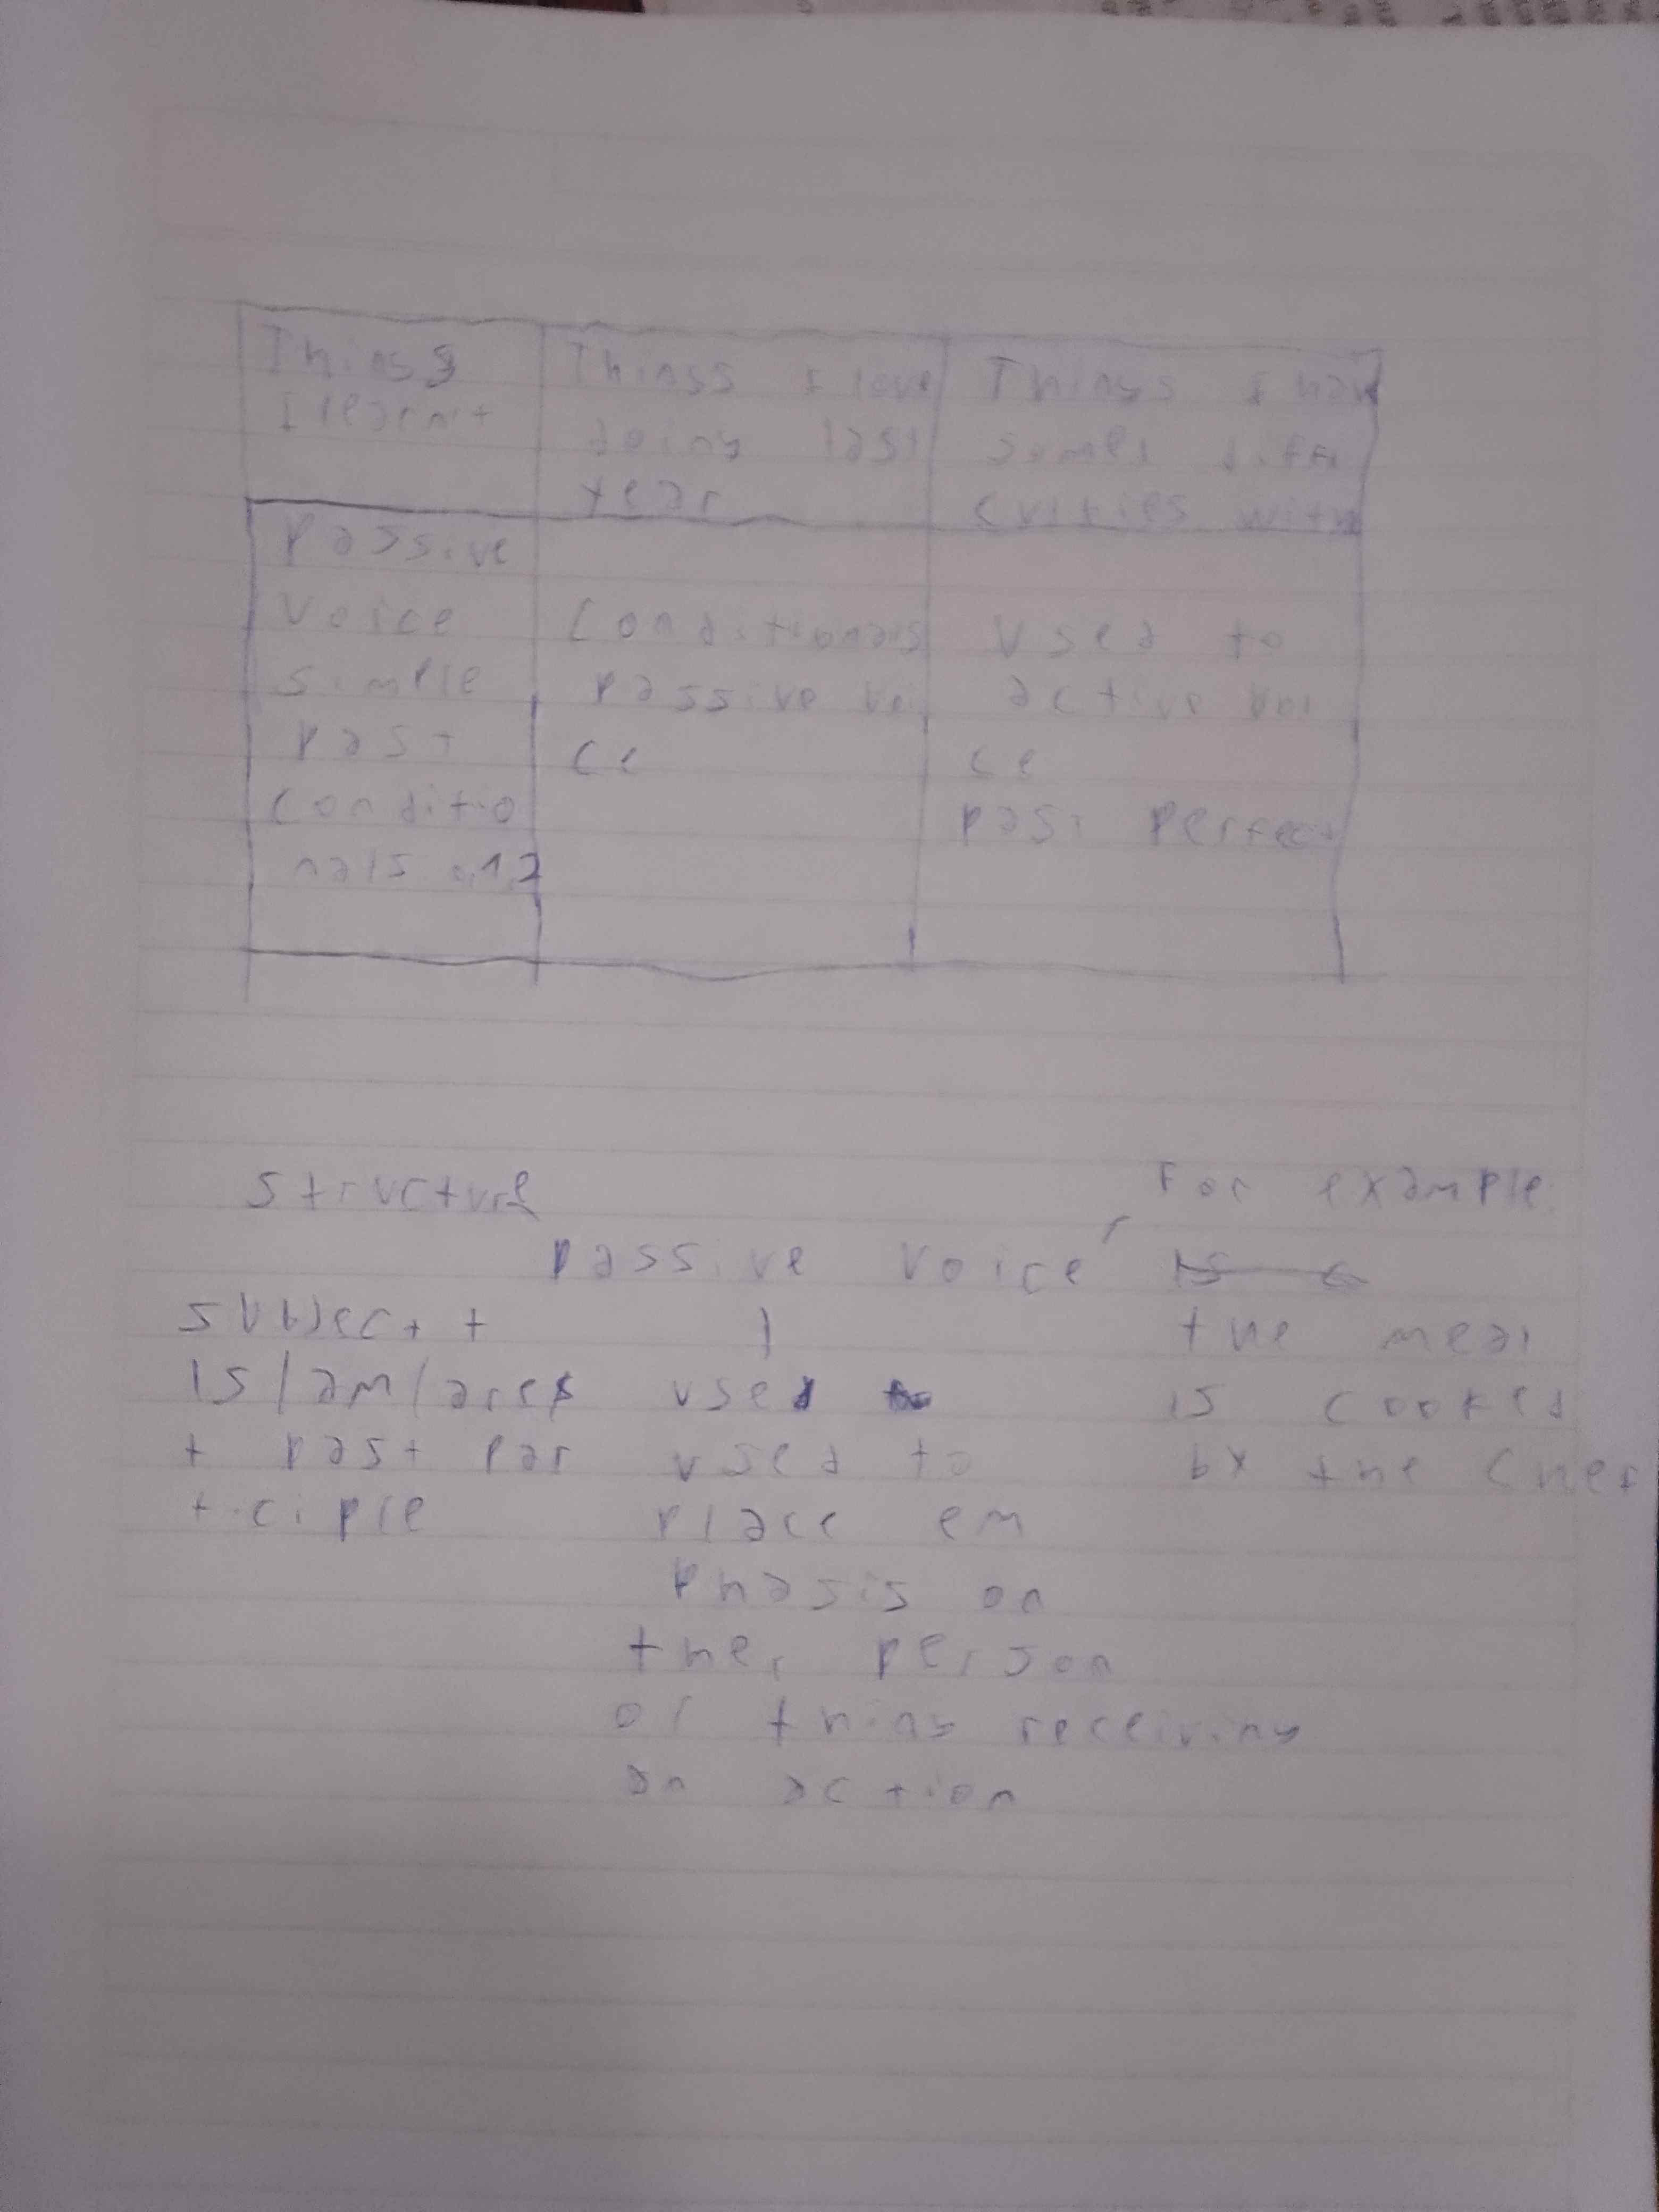 Things
I learnit
Things I love
doing last
year
Things I hav
some diffi
culties with
Passive
Voice
simple
past
conditio
nals 0,1,2
Conditionals
passive voi
ce
Used to
active voi
ce
past perfect
Structure
subject +
is/am/are
+ past par
ticiple
passive voice
used
used to
place em
phasis on
the, person
or thing receiving
an action
For example
the meal
is cooked
by the chef